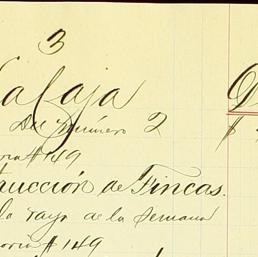 3
La Caja
Del número 2
# 149
trucción de Fincas.
la raya de la Semana
# 149